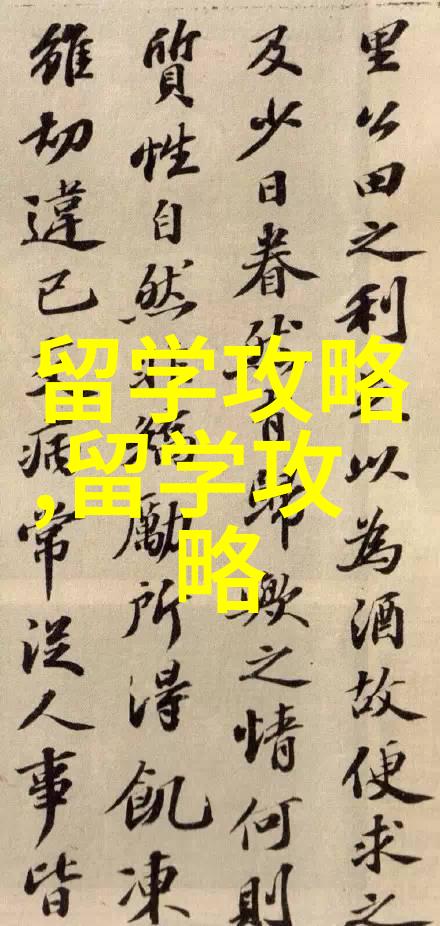 里公田之利以為酒故便求之
及少日眷然有歸歟之情何則
質性自然矯勵所得飢凍
雖切違己病常從人事皆
留学攻略
,留学攻
略